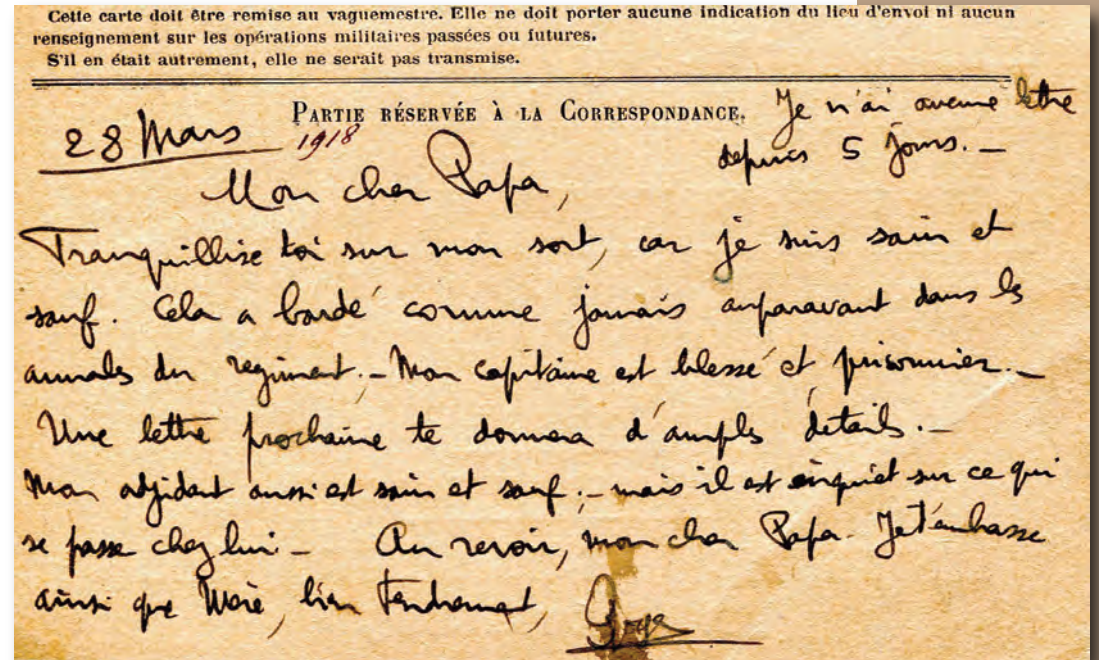 Cette carte doit être remise au vaguemestre. Elle ne doit porter aucune indication du lieu d'envoi ni aucun
renseignement sur les opérations militaires passées ou futures.
S'il en était autrement, elle ne serait pas transmise.
PARTIE RÉSERVÉE À LA CORRESPONDANCE.
Je n'ai aucune lettre
depuis 5 jours. _
28 Mars 1918
Mon cher Papa,
Tranquillise toi sur mon sort, car je suis sain et
sauf. Cela a bardé comme jamais auparavant dans les
annales du regiment. _ Mon capitaine est blessé et prisonnier. _
Une lettre prochaine te donnera d'amples détails. _
Mon adjudant aussi est sain et sauf ; _ mais il est inquiet sur ce qui
se passe chez lui _ Au revoir, mon cher Papa. Je t'embrasse
ainsi que Mère, bien tendrement,